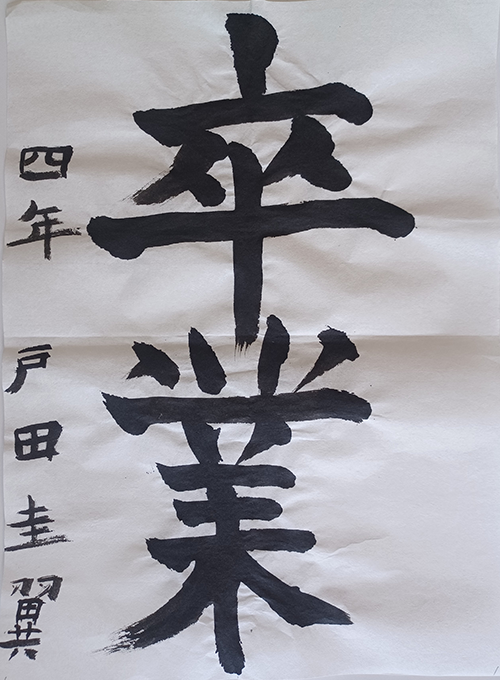 卒業
四年 戸田圭翼